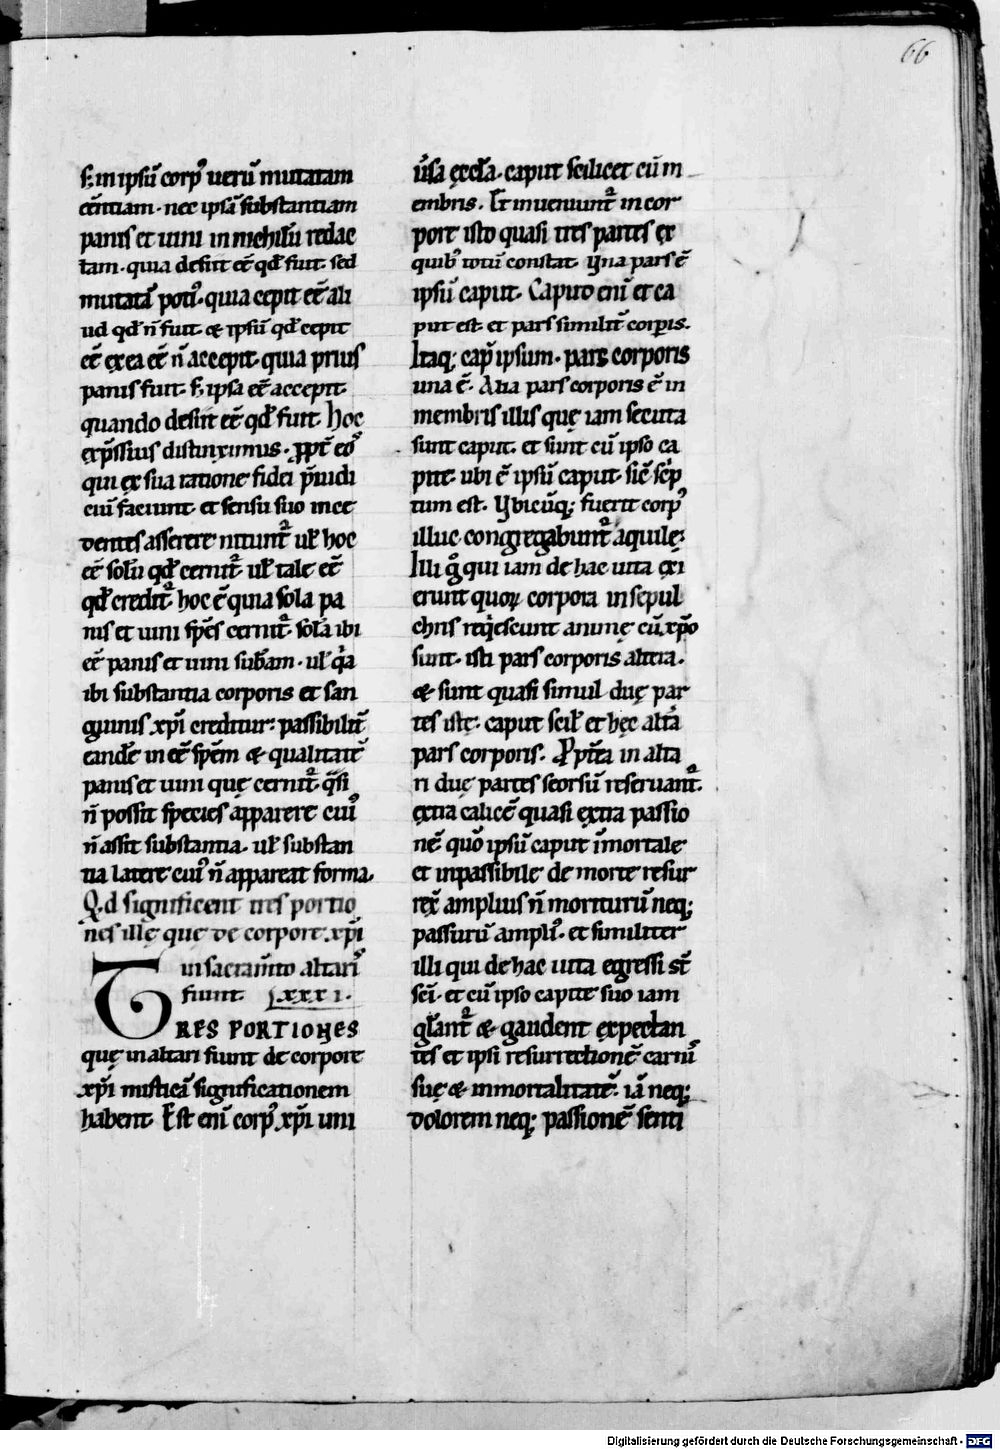 66
sꝫ in ipsū corpꝰ uerū mutatam
eēntiam. nec ipsā substantiam
panis et uini in nichilū redac
tam. quia desiit eē qđ fuit. sed
mutatā potiꝰ. quia cepit eē ali
ud qđ n̄ fuit. & ipsū qđ cepit
eē ex ea eē n̄ accepit. quia prius
panis fuit. sꝫ ipsa eē accepit.
quando desiit eē qđ fuit. hoc
exp̄ssius distinximus. ꝓpt̄ eoꝰ
qui ex sua ratione fidei p̄iudi
ciū faciunt. et sensu suo ince
dentes asserere nitunt᷑ uł hoc
eē solū qđ cernit᷑ uł tale eē
qđ credit᷑. hoc ē quia sola pa
nis et uini sp̄es cernit᷑. sola ibi
eē panis et uini sub̄am. uł qͣa
ibi substantia corporis et san
guinis xp̄i creditur: passibilit̄
eandē in eē sp̄em & qualitatē
panis et uini que cernit᷑. qͣsi
n̄ possit species apparere cuiꝰ
n̄ assit substantia. uł substan
tia latere cuiꝰ n̄ appareat forma.
Q̇d significent tres portio
nes ille que de corpore xp̄i
in sacram̄to altarıſ
fiunt. LXXXI.
TRES PORTIONES
quę in altari fiunt de corpore
xp̄i misticā significationem
habent. Est eni corpꝰ xp̄i uni
ūsa ęccła. caput scilicet cū m
embris. Et inueniunt᷑ in cor
pore isto quasi tres partes ex
quibꝰ totū constat. Vna pars ē
ipsū caput. Caput enī et ca
put est. et pars similit̄ corporis.
Itaqꝫ cap̄ ipsum. pars corporis
una ē. Alia pars corporis ē in
membris illis quę iam secuta
sunt caput. et sunt cū ipso ca
pite. ubi ē ipsū caput. sic̄ sc̄p
tum est. Vbicūqꝫ fuerit corpꝰ
illuc congregabunt᷑ aquilę.
Illi gͦ qui iam de hac uita exi
erunt quoꝝ corpora in sepul
chris reqͥescunt animę cū xp̄o
sunt. isti pars corporis altera.
& sunt quasi simul duę par
tes istę: caput scił et hęc altͣa
pars corporis. Ppt̄ea in alta
ri duę partes seorsū reseruant᷑.
extra calicē quasi extra passio
nē quō ipsū caput īmortale
et inpassibile de morte resur
rex̄ amplius n̄ moriturū neqꝫ
passurū ampliꝰ. et similiter
illi qui de hac uita egressi st̄
sc̄i. et cū ipso capite suo iam
glānt᷑ & gaudent expectan
tes et ipsi resurrectionē carnıſ
suę & inmortalitatē. iā neqꝫ
dolorem neqꝫ passionē senti
Digitalisierung gefördert durch die Deutsche Forschungsgemeinschaft - DFG